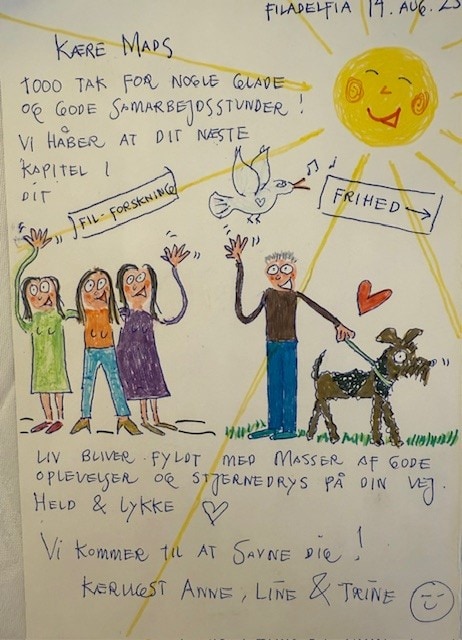 FILADELFIA 14. AUG. 25
KÆRE MADS
1000 TAK FOR NOGLE GLADE
OG GODE SAMARBEJDSSTUNDER!
VI HÅBER AT DIT NÆSTE
KAPITEL I
DIT
FIL-FORSKNING
FRIHED →
LIV BLIVER FYLDT MED MASSER AF GODE
OPLEVELSER OG STJERNEDRYS PÅ DIN VEJ.
HELD & LYKKE ♡
VI KOMMER TIL AT SAVNE DIG!
KÆRLIGST ANNE, LINE & TRINE